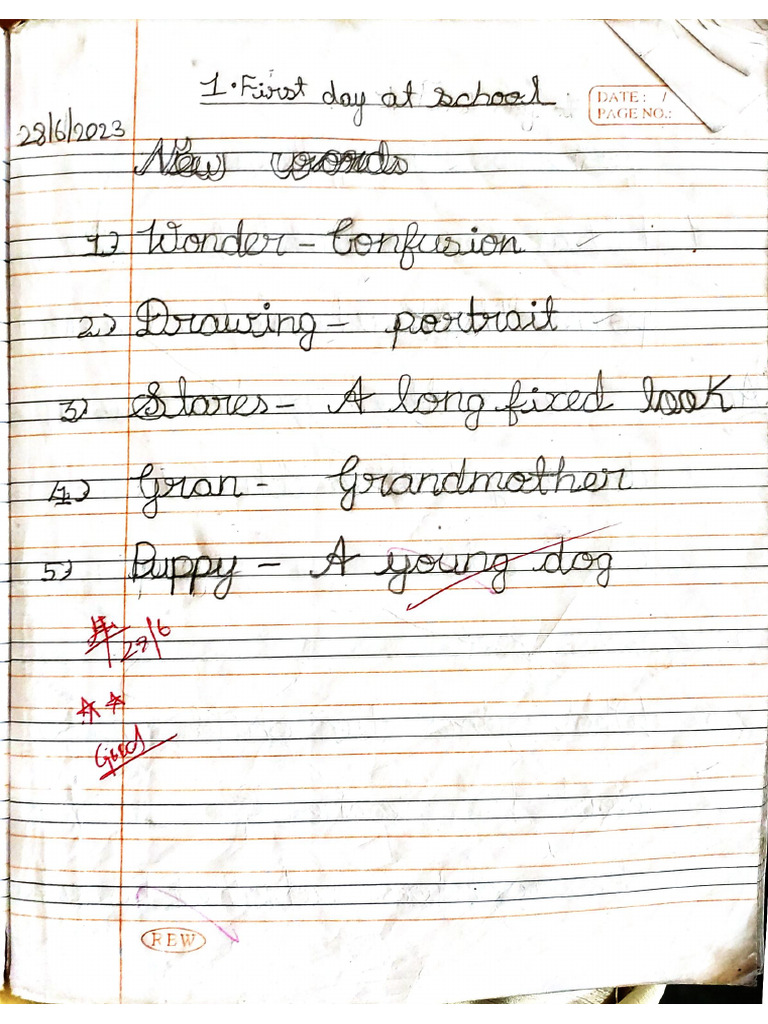 1. First day at school
DATE: /
PAGE NO.:
28/6/2023
New words
1) Wonder - Confusion
2) Drawing - portrait
3) Stares - A long fixed look
4) Gran - Grandmother
5) Puppy - A young dog
Good
REW